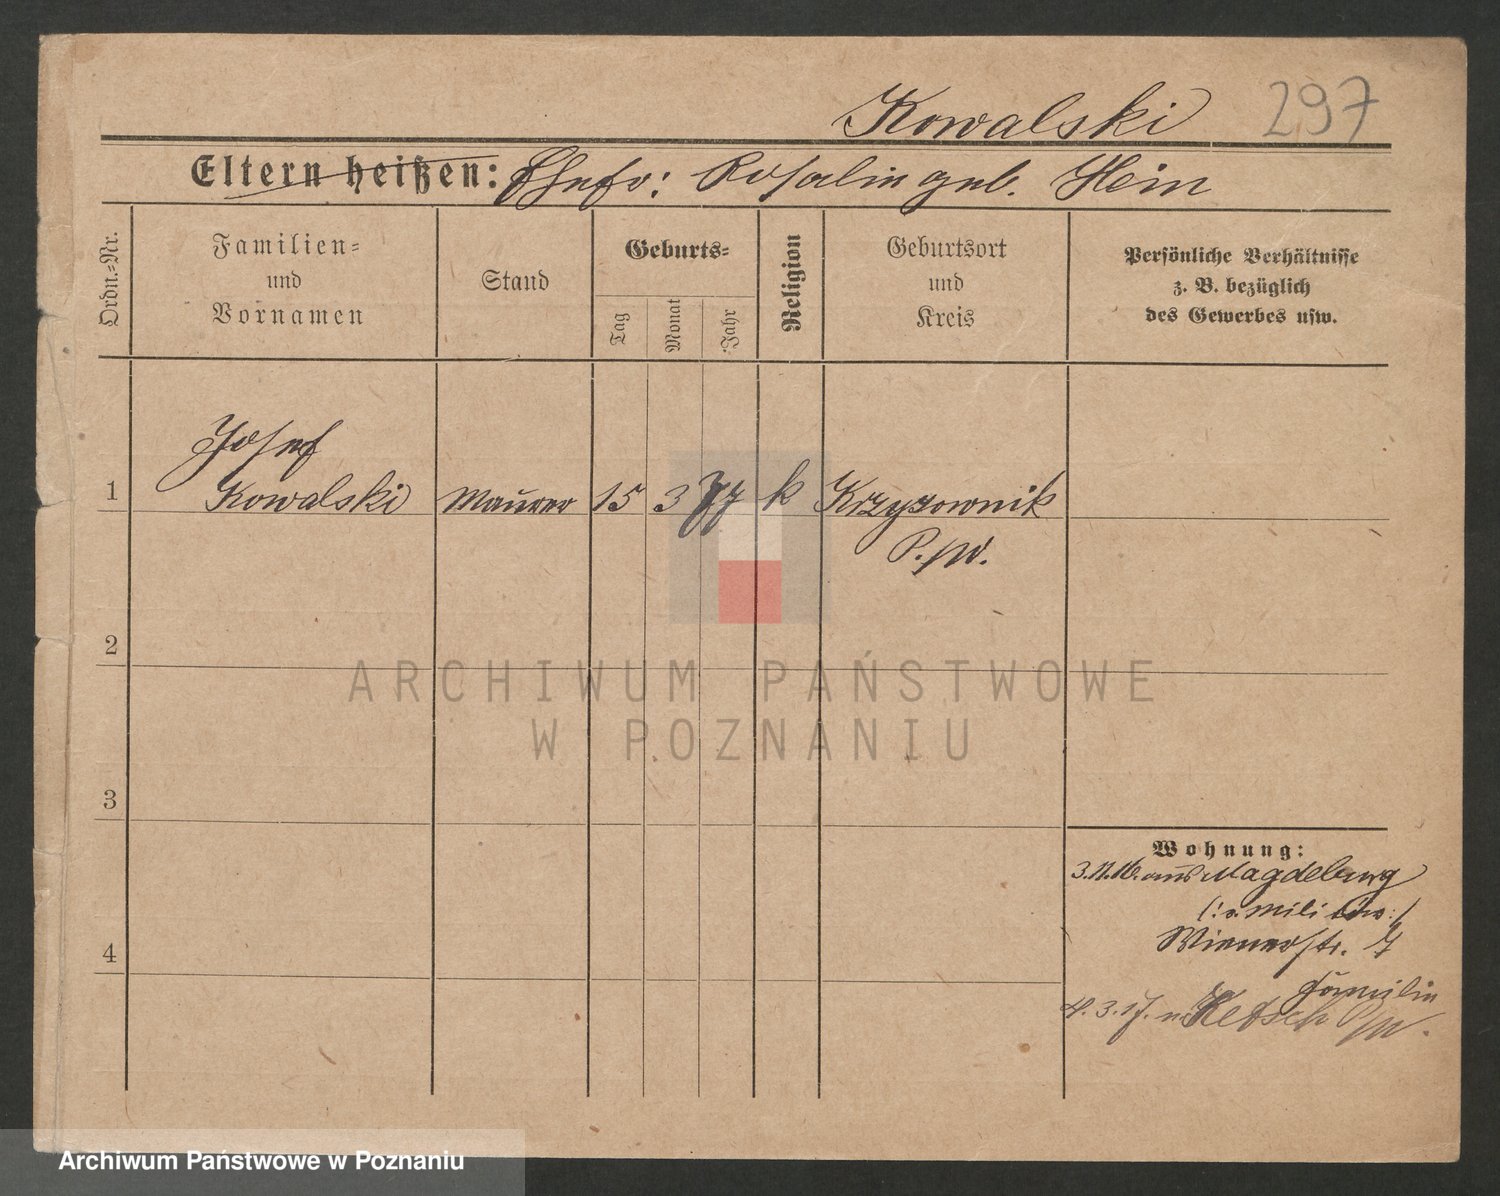 Kowalski 297
Eltern heißen: Ehefr: Rosalie geb. Hein
Ordn.=Nr.
Familien=
und
Vornamen
Stand
Geburts=
Tag
Monat
Jahr
Religion
Geburtsort
und
Kreis
Persönliche Verhältnisse
z. B. bezüglich
des Gewerbes usw.
Josef
1 Kowalski Maurer 15 3 77 k Krzyzownik
P./W.
2
ARCHIWUM PAŃSTWOWE
W POZNANIU
3
Wohnung:
3.11.16. aus Magdeburg
Wienerstr. 7
4
Familie
4.3.17. n. P/W.
Archiwum Państwowe w Poznaniu